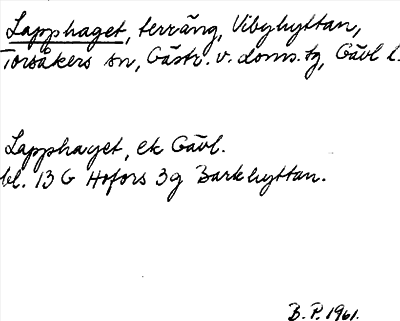 Lapphaget, terräng, Vibyhyttan,
Torsåkers sn, Gästr. v. doms. tg, Gävl l.
Lapphaget, ek Gävl.
bl. 13 G Hofors 3g Barkhyttan.
B. P. 1961.